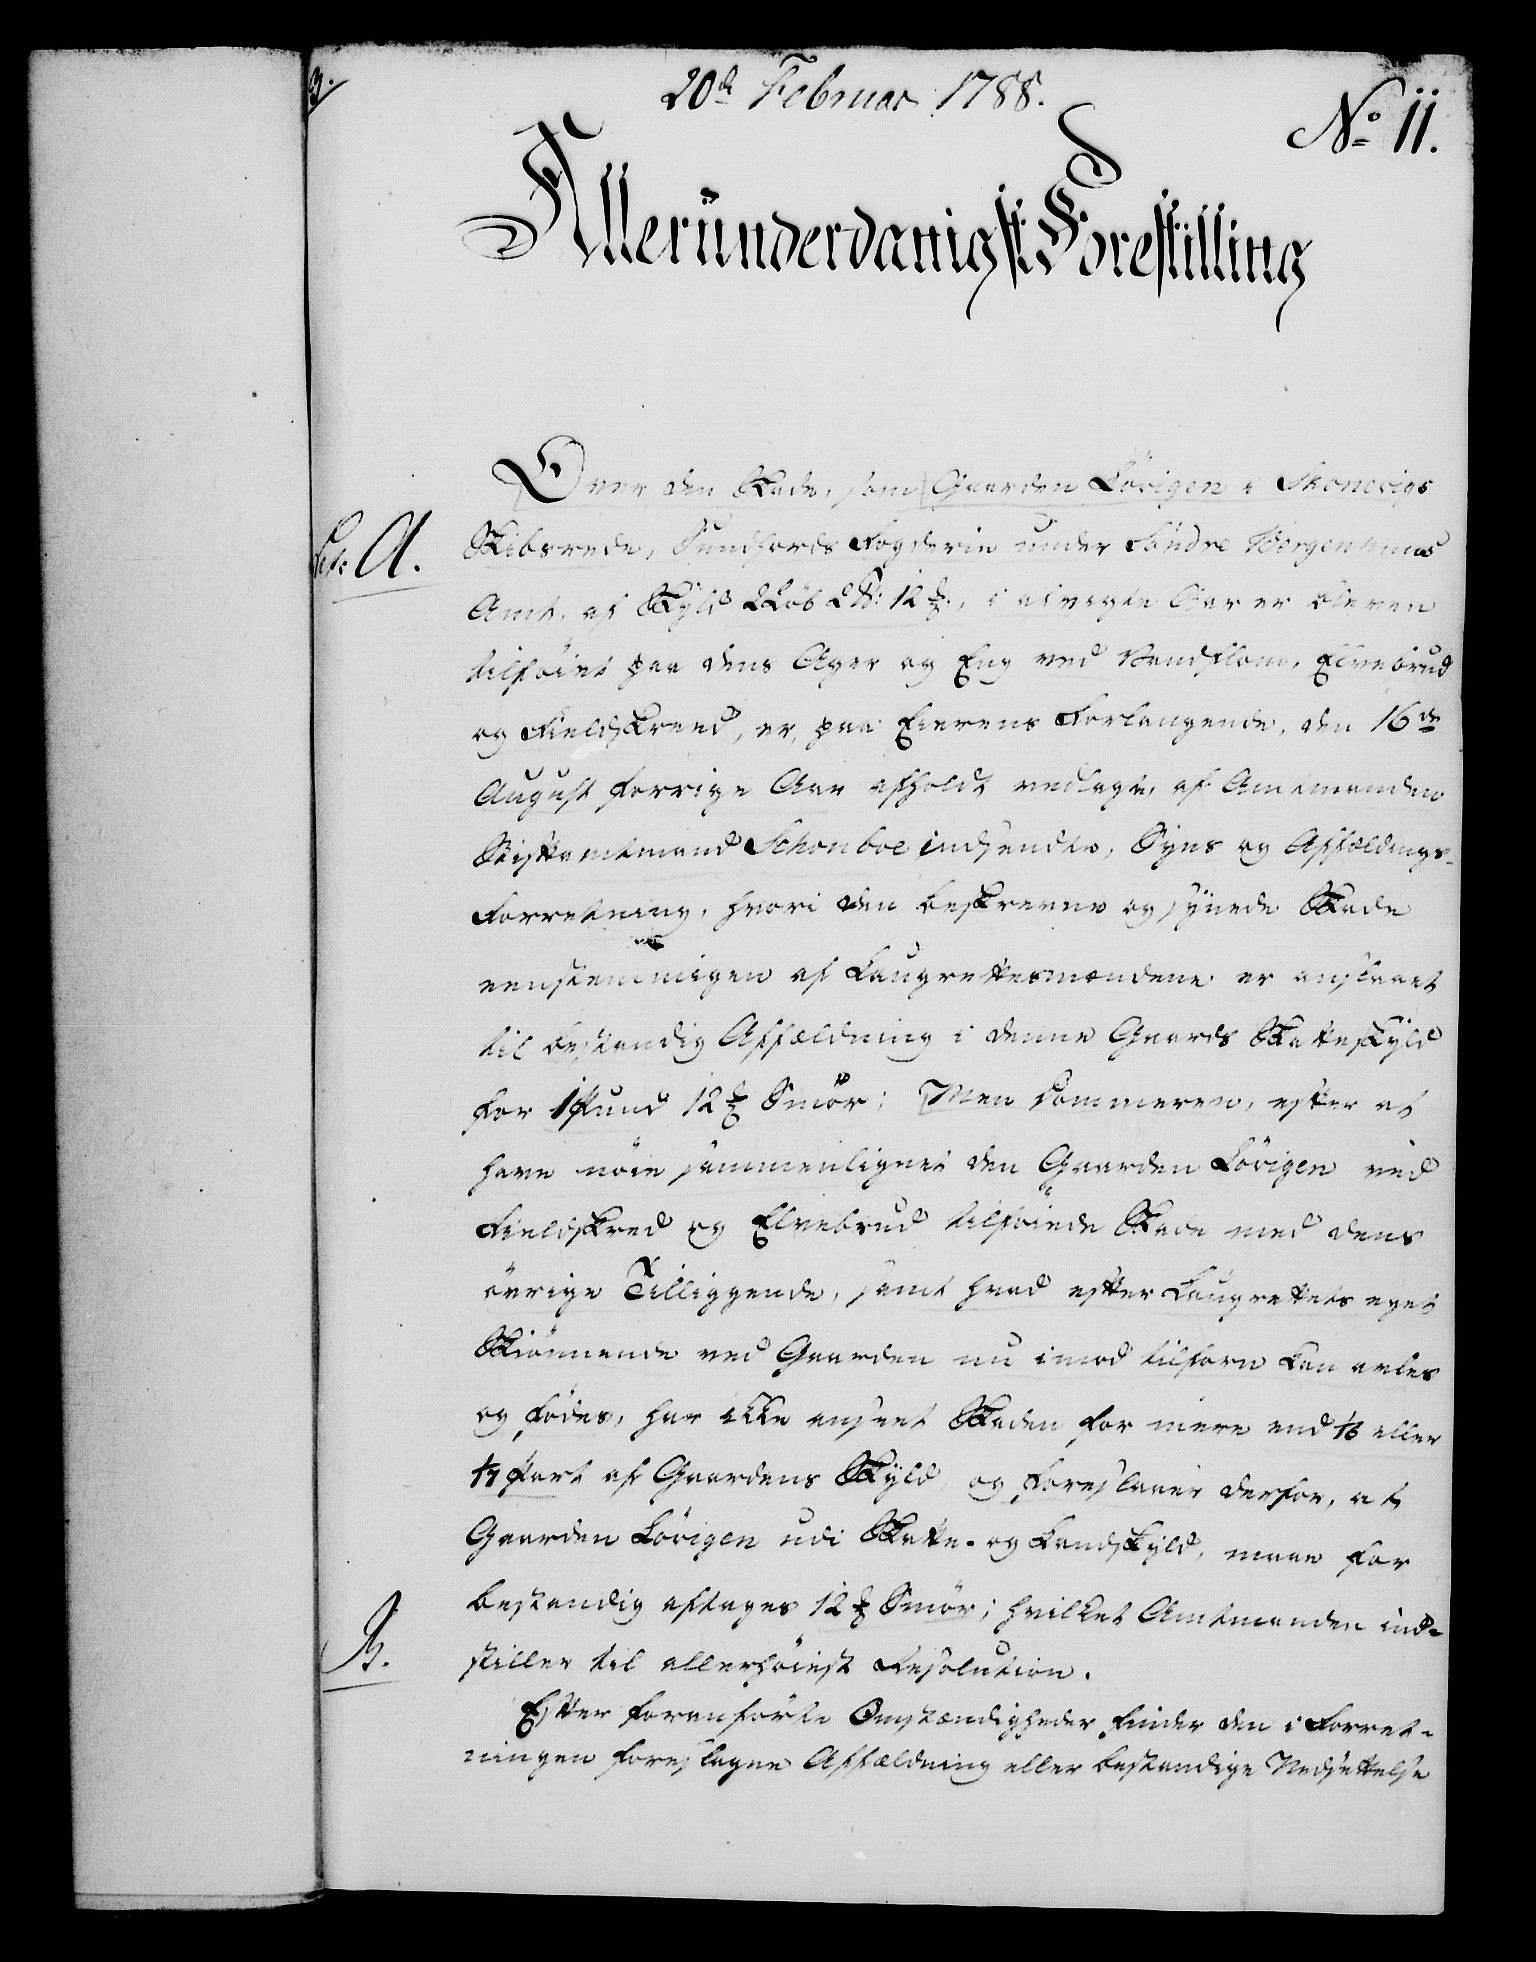 20de Februar 1788.
No 11.
Alleründerdanigst Forestilling
Over den Skade, som Gaarden Lövigen i Skonevigs
Lit: A.
Skibsrede, Sundhords Fogderie under Söndre Bergenhuus
Amt, af Skyld 2 Löb 2 ℔: 12 ℔., i eivigte Aar er bleven
tilföiet paa dens Ager og Eng ved Vandflom, Elvebrud
og Fieldskreed, er, paa Eierens Forlangende, den 16de
August forrige Aar afholdt vedlagte, af Amtmanden
Stiftamtmand Schonboe indsendte, Syns og Affældings-
Forretning, hvori den beskrevne og synede Skade
eenstemmigen af Laugrettesmændene er anslaaet
til bestandig Affældning i denne Gaards Skatteskyld
for 1 Pund 12 ℔ Smör; Men Kammeren, efter at
have nöie sammenlignet den Gaarden Lövigen ved
Fieldskred og Elvebrud tilföiede Skade med dens
övrige Tilliggende, samt hvad efter Laugrettets eget
Skiönnende ved Gaarden nu imod tilforn kan avles
og födes, har ikke anseet Skaden for mere end 1/6 eller
1/7 Part af Gaardens Skyld, og foreslaaer derfor, at
Gaarden Lövigen udi Skatte- og Landskyld, maae for
bestandig aftages 12 ℔ Smör; hvilket Amtmanden ind-
B.
stiller til allerhöiest Resolution.
Efter foranförte Omstændigheder finder den i Forret-
ningen foreslagne Affældning eller bestandige Nedsettelse